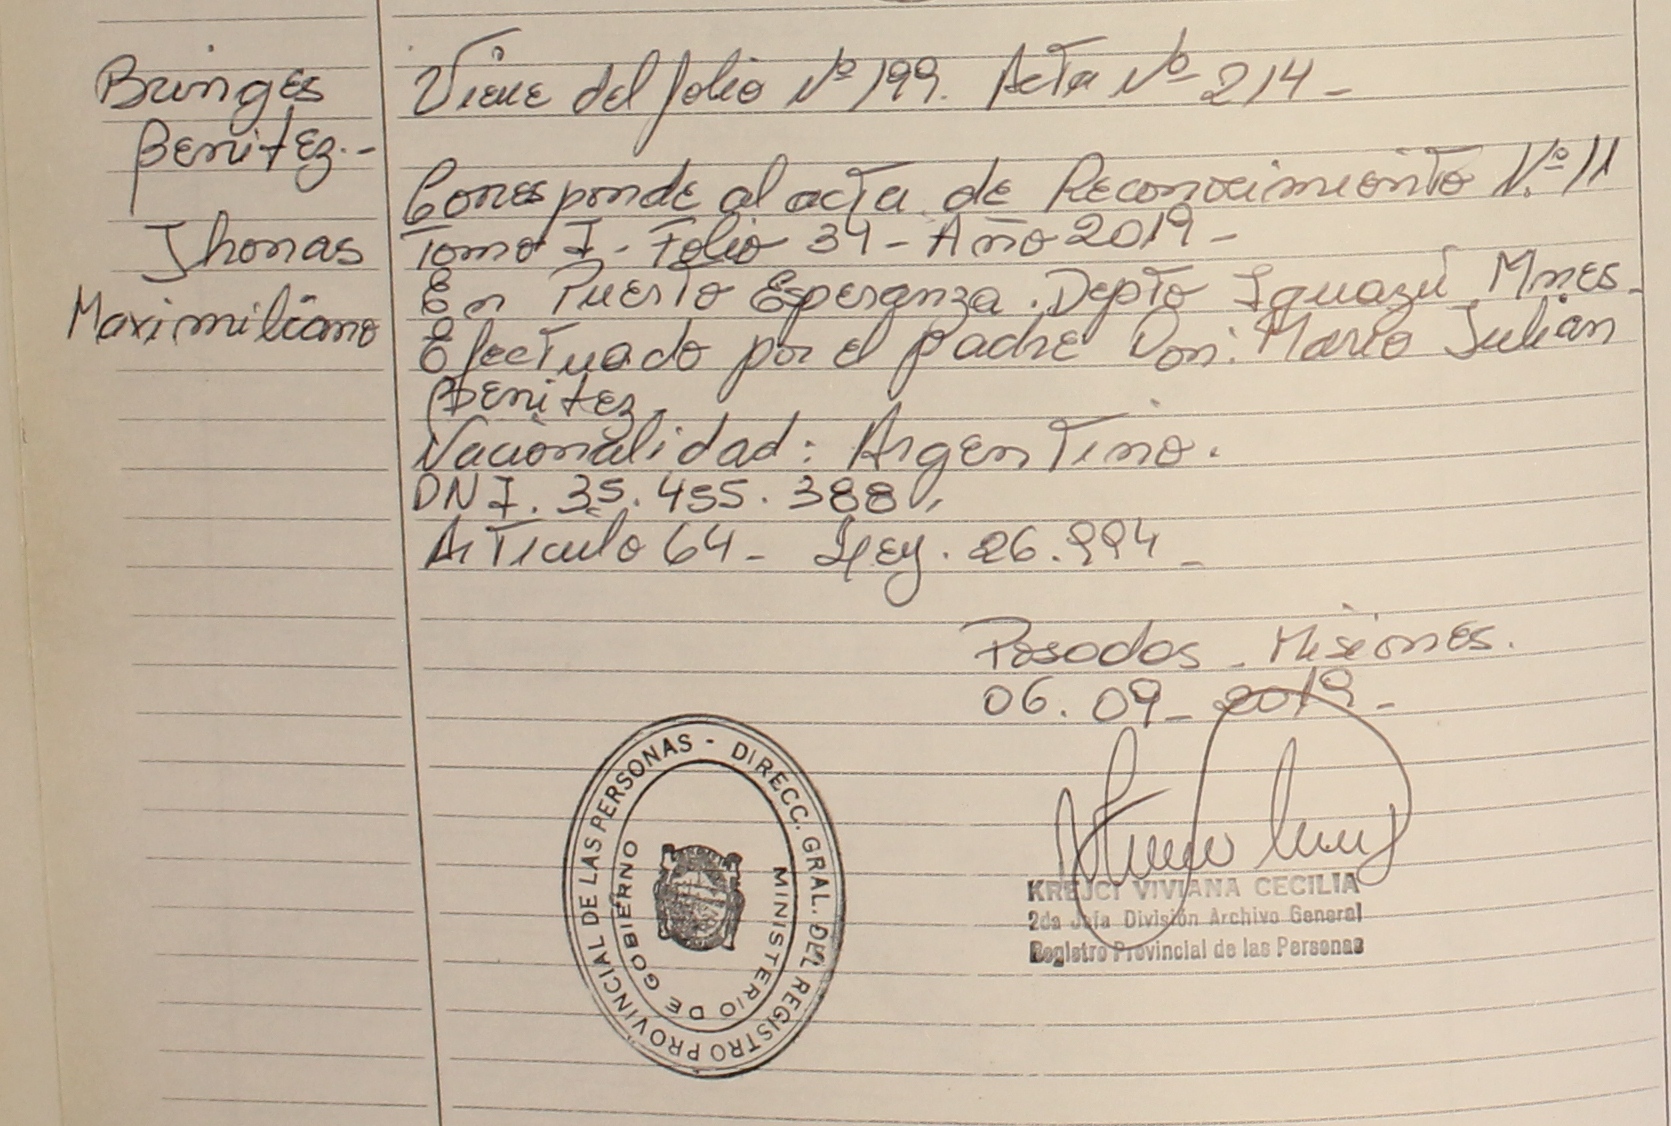 Bringes
Benitez.-
Jhonas
Maximiliano
Viene del folio Nº 199. Acta Nº 214-
Corresponde al acta de Reconocimiento N.º 11
Tomo I - Folio 34 - Año 2019 -
En Puerto Esperanza. Depto Iguazú Mnes.
Efectuado por el padre Don: Mario Julian
Benitez.
Nacionalidad: Argentino.
DNI. 35.455.388.
Articulo 64 - Ley. 26.994 -
Posadas - Misiones.
06. 09 - 2019 -
DIRECC. GRAL. DEL REGISTRO PROVINCIAL DE LAS PERSONAS -
MINISTERIO DE GOBIERNO
KREJCI VIVIANA CECILIA
2da Jefa División Archivo General
Registro Provincial de las Personas